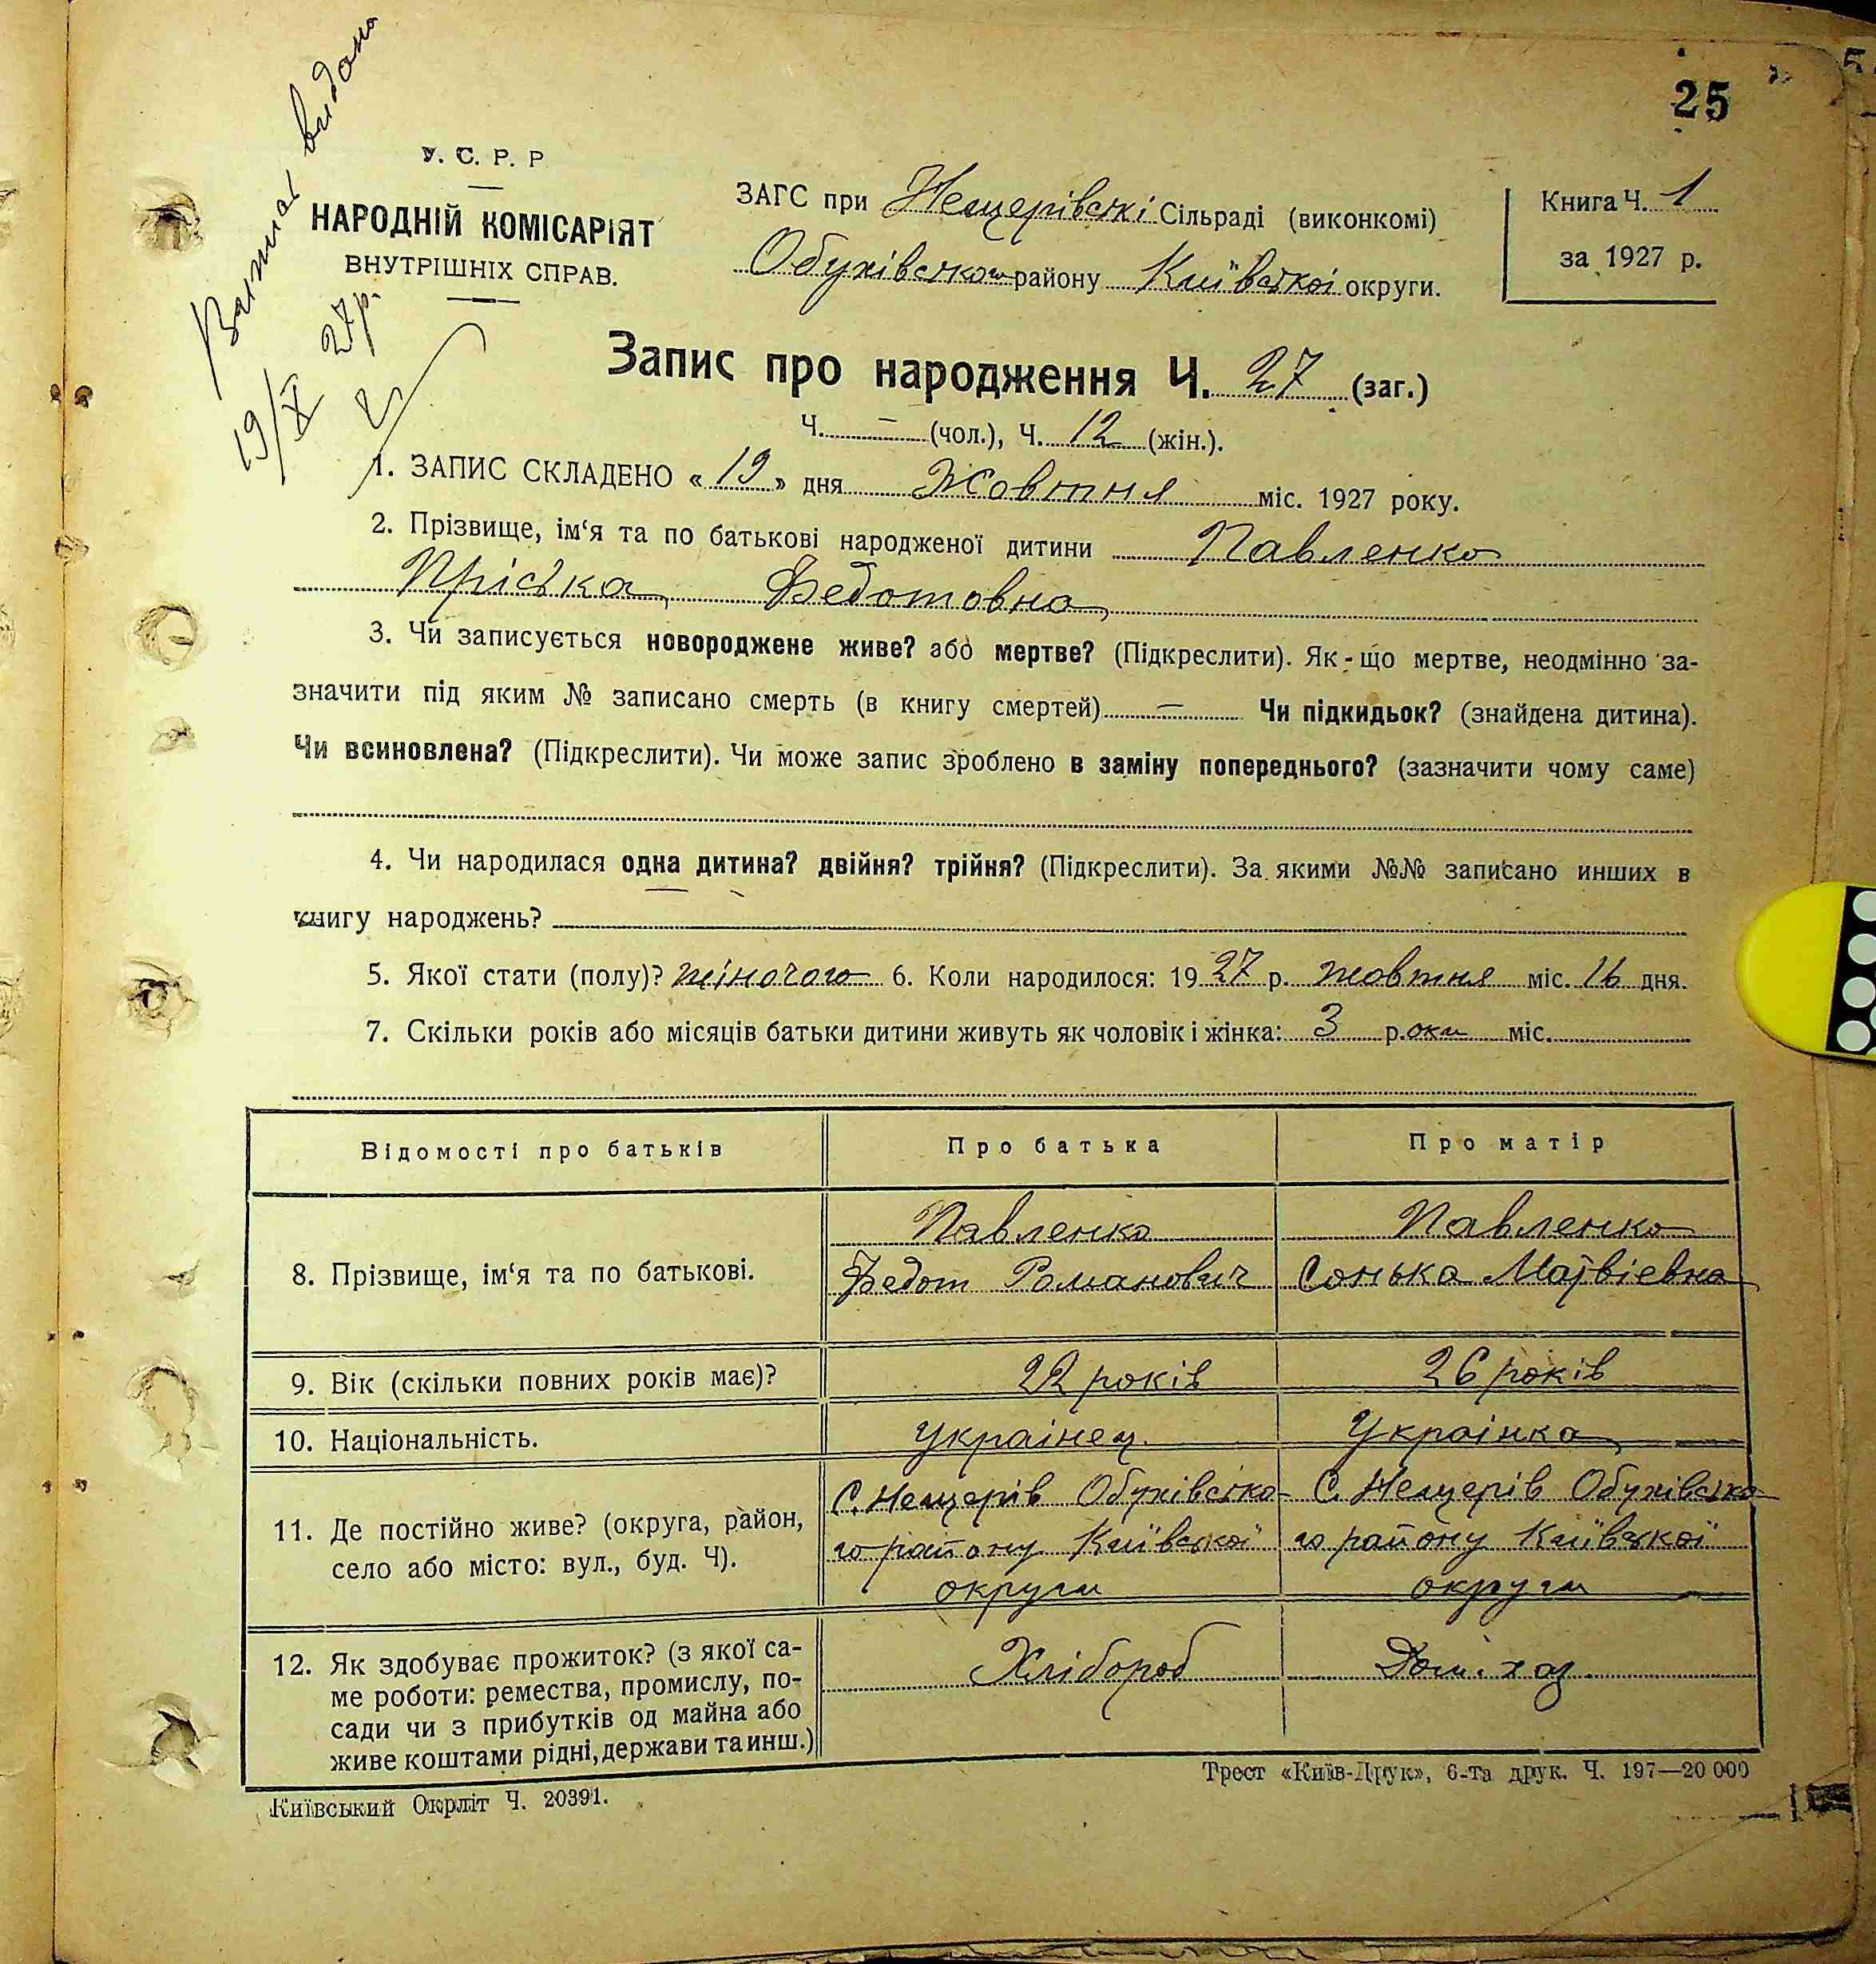 25
Витяг видана
19/X 27р.
У. С. Р. Р
НАРОДНІЙ КОМІСАРІЯТ
ВНУТРІШНІХ СПРАВ.
ЗАГС при Нещерівські Сільраді (виконкомі)
Обухівського району Київської округи.
Книга Ч. 1
за 1927 р.
Запис про народження Ч. 27 (заг.)
Ч. — (чол.), Ч. 12 (жін.).
1. ЗАПИС СКЛАДЕНО « 19 » дня Жовтня міс. 1927 року.
2. Прізвище, ім‘я та по батькові народженої дитини Павленко
Пріська Федотовна
3. Чи записується новороджене живе? або мертве? (Підкреслити). Як-що мертве, неодмінно за-
значити під яким № записано смерть (в книгу смертей) — Чи підкидьок? (знайдена дитина).
Чи всиновлена? (Підкреслити). Чи може запис зроблено в заміну попереднього? (зазначити чому саме)
4. Чи народилася одна дитина? двійня? трійня? (Підкреслити). За якими №№ записано инших в
книгу народжень?
5. Якої стати (полу)? жіночого 6. Коли народилося: 19 27 р. жовтня міс. 16 дня.
7. Скільки років або місяців батьки дитини живуть як чоловік і жінка: 3 роки міс.
Відомості про батьків Про батька Про матір
8. Прізвище, ім‘я та по батькові.
Павленко
Федот Романович
Павленко
Сонька Матвіевна
9. Вік (скільки повних років має)? 22 років 26 років
10. Національність. Украінец. Украінка
11. Де постійно живе? (округа, район,
село або місто: вул., буд. Ч).
С. Нещерів Обухівсько-
го району Київської
округи
С. Нещерів Обухівсько
го району Київської
округи
12. Як здобуває прожиток? (з якої са-
ме роботи: ремества, промислу, по-
сади чи з прибутків од майна або
живе коштами рідні, держави та инш.)
Хлібороб
Дом. хоз.
Київський Окрліт Ч. 20391.
Трест «Київ-Друк», 6-та друк. Ч. 197—20 000